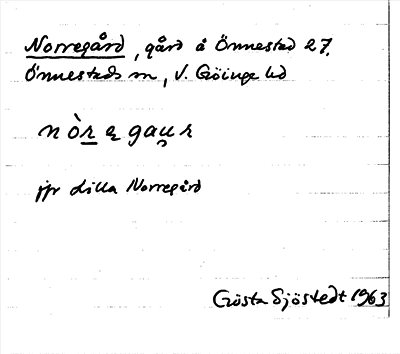 Norregård, gård å Önnestad 27.
Önnestads sn, V. Göinge hd
nòr ą gau̯r
jfr Lilla Norregård
Gösta Sjöstedt 1963